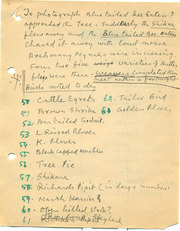 To photograph Blue tailed Bee Eaters I
approached the Tree - Suddenly the Shikra
flew away and the Blue tailed Bee Eaters
chased it away with loud noise.
Brahminy Mynas were increasing.
Four to five varieties of
were there
Birds noted to day
50 Cattle Egrets 62. Tailor Bird
51 Brown Shrike 63 Golden Plover
52 Bar tailed Godwit
53 L Ringed Plover
54 K. Plover
55 Black capped
56 Tree Pie
57 Shikara
58 Richards Pipit (in large number)
59 Marsh Harrier
60 - Open billed Stork?
61